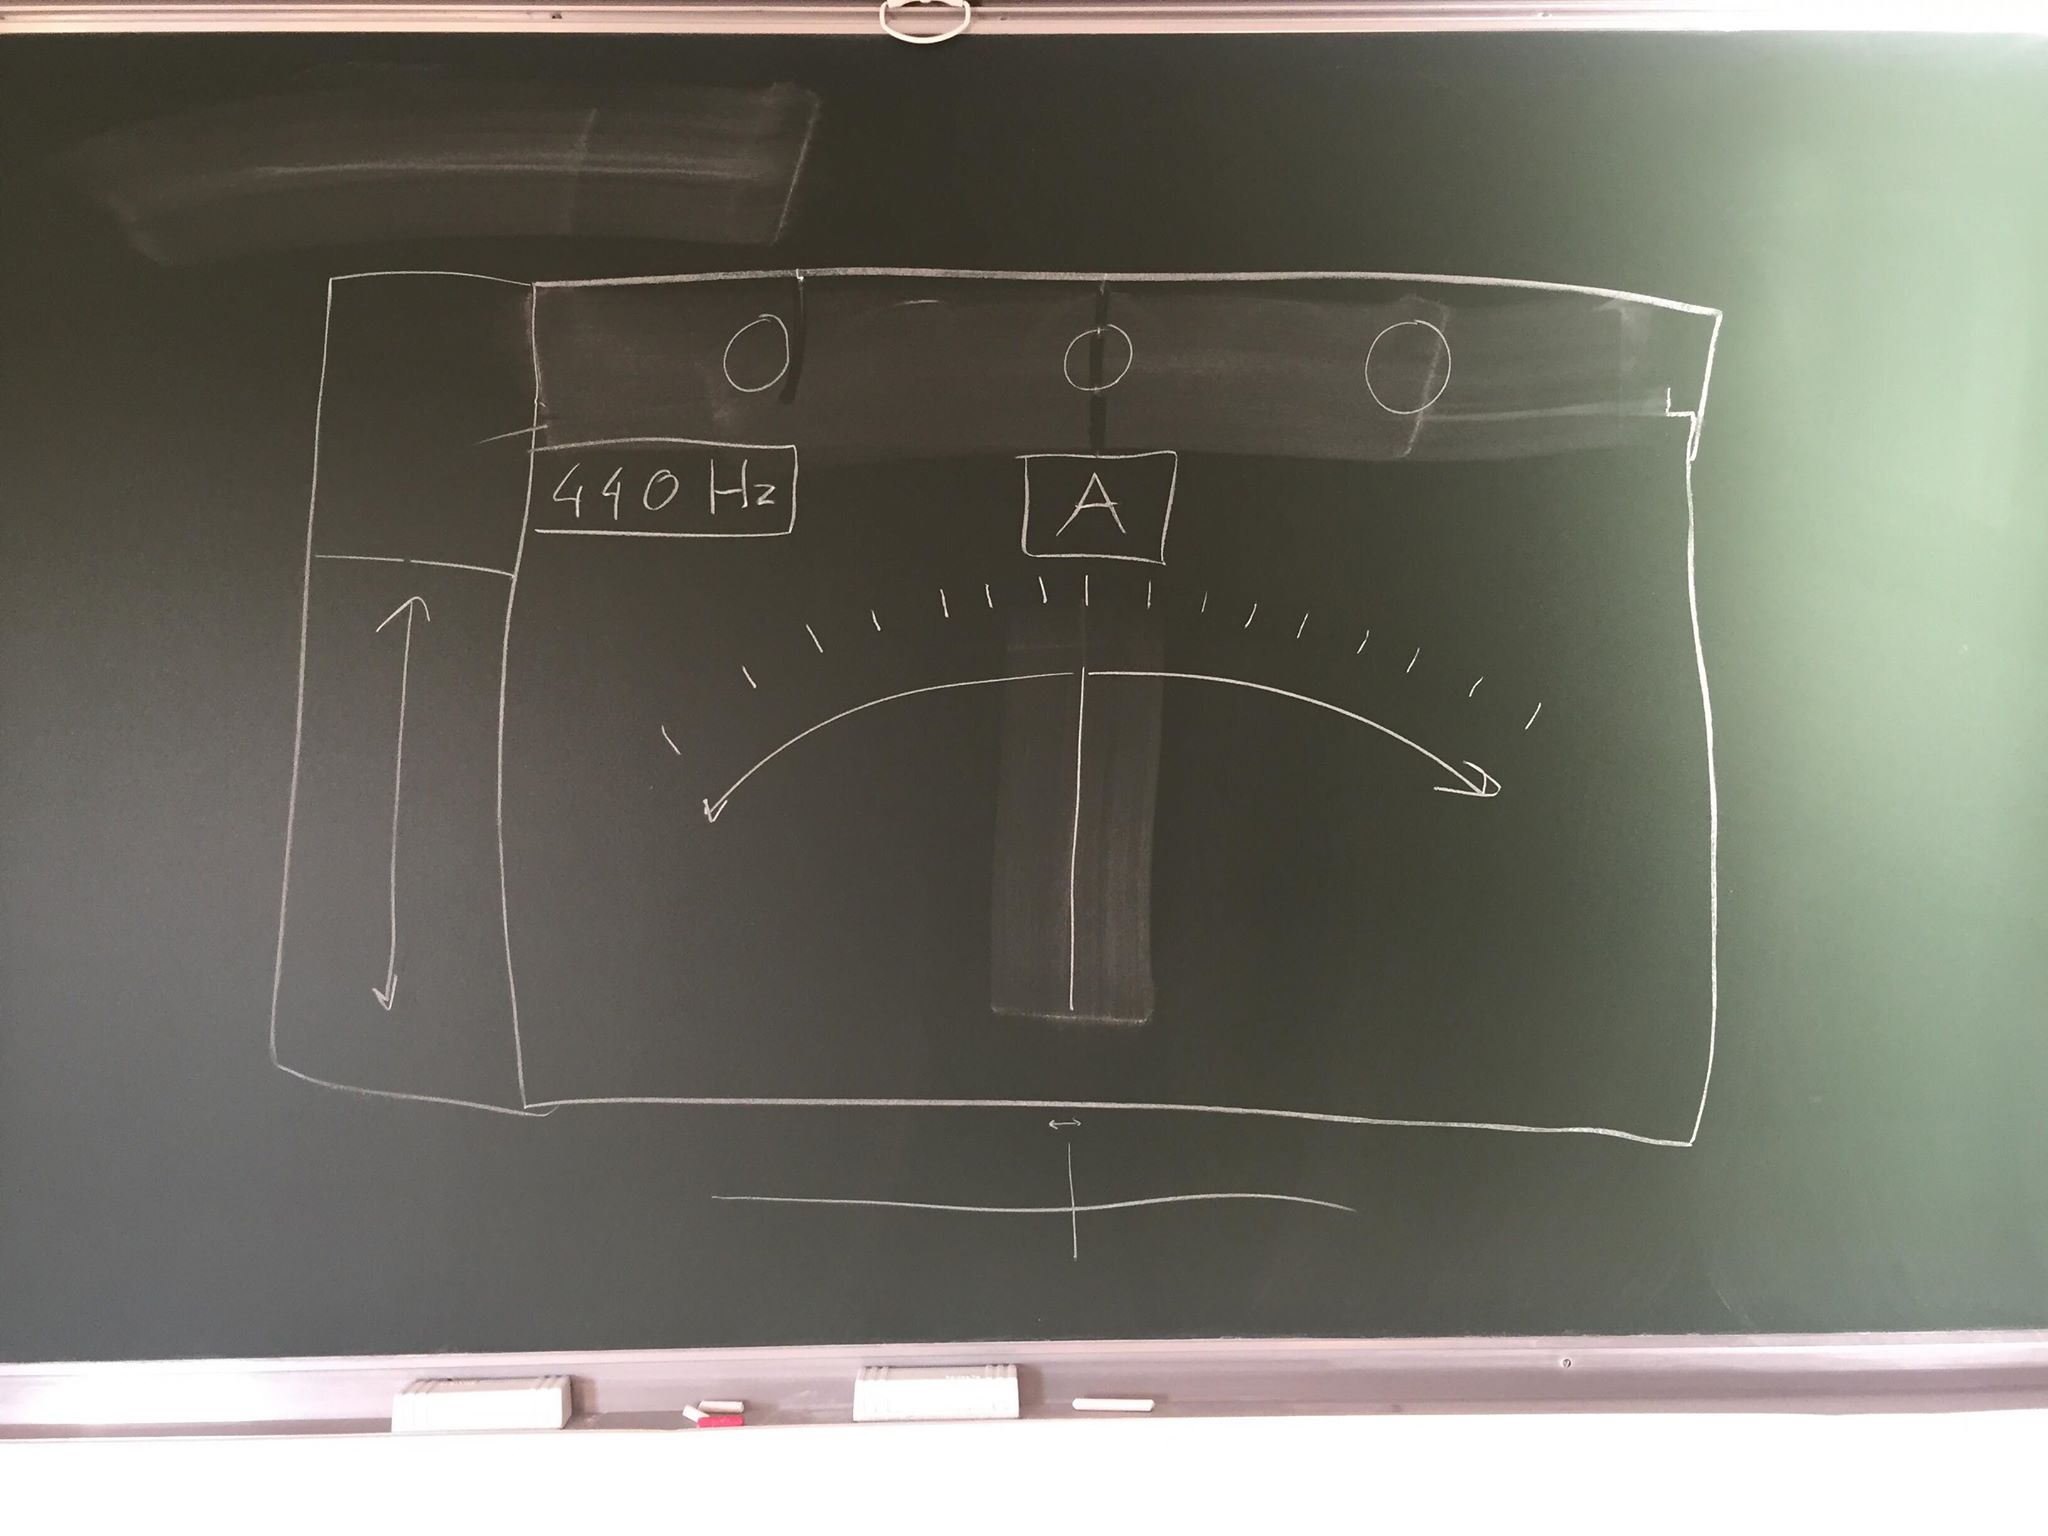 440 Hz
A